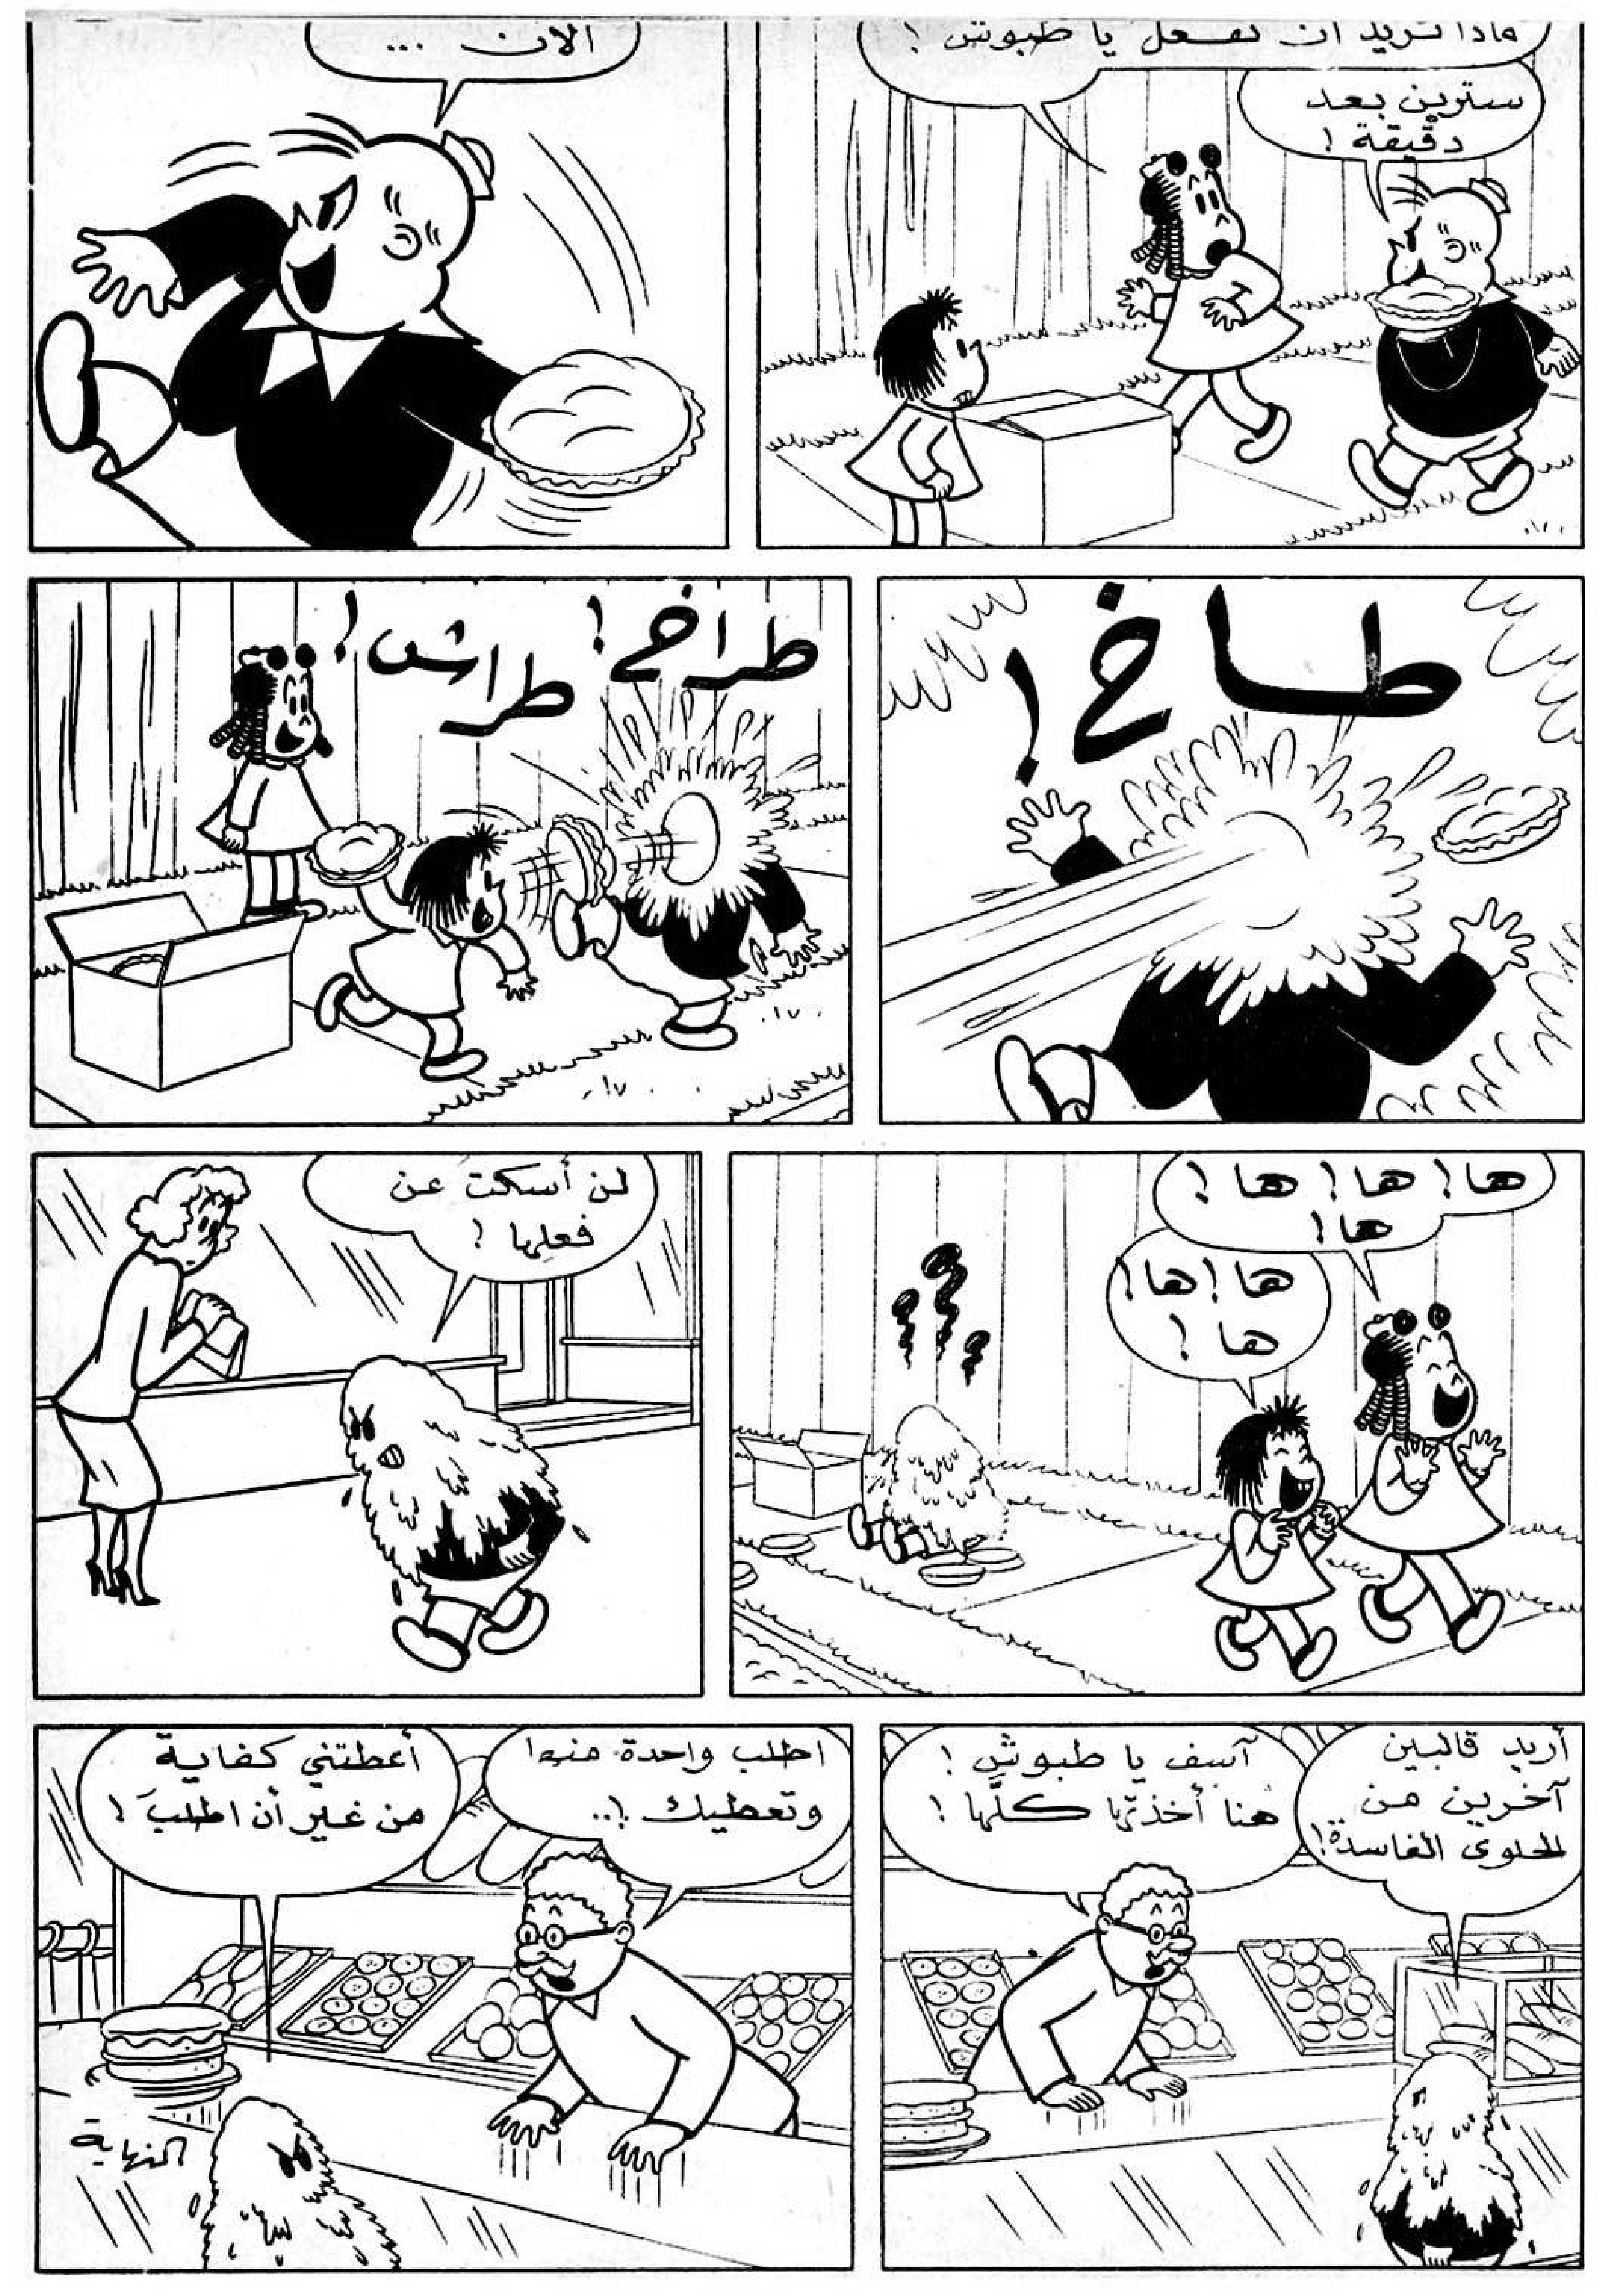 ماذا تريد ان تفعل يا طبوش !
سترين بعد
دقيقة !
الان ...
طاخ !
طراخ !
طراش !
ها ! ها ! ها !
ها !
ها ! ها !
ها !
لن أسكت عن
فعلها !
أريد قالبين
آخرين من
الحلوى الفاسدة !
آسف يا طبوش !
هنا أخذتها كلّها !
اطلب واحدة منها
وتعطيك !..
أعطتني كفاية
من غير أن اطلبَ !
النهاية